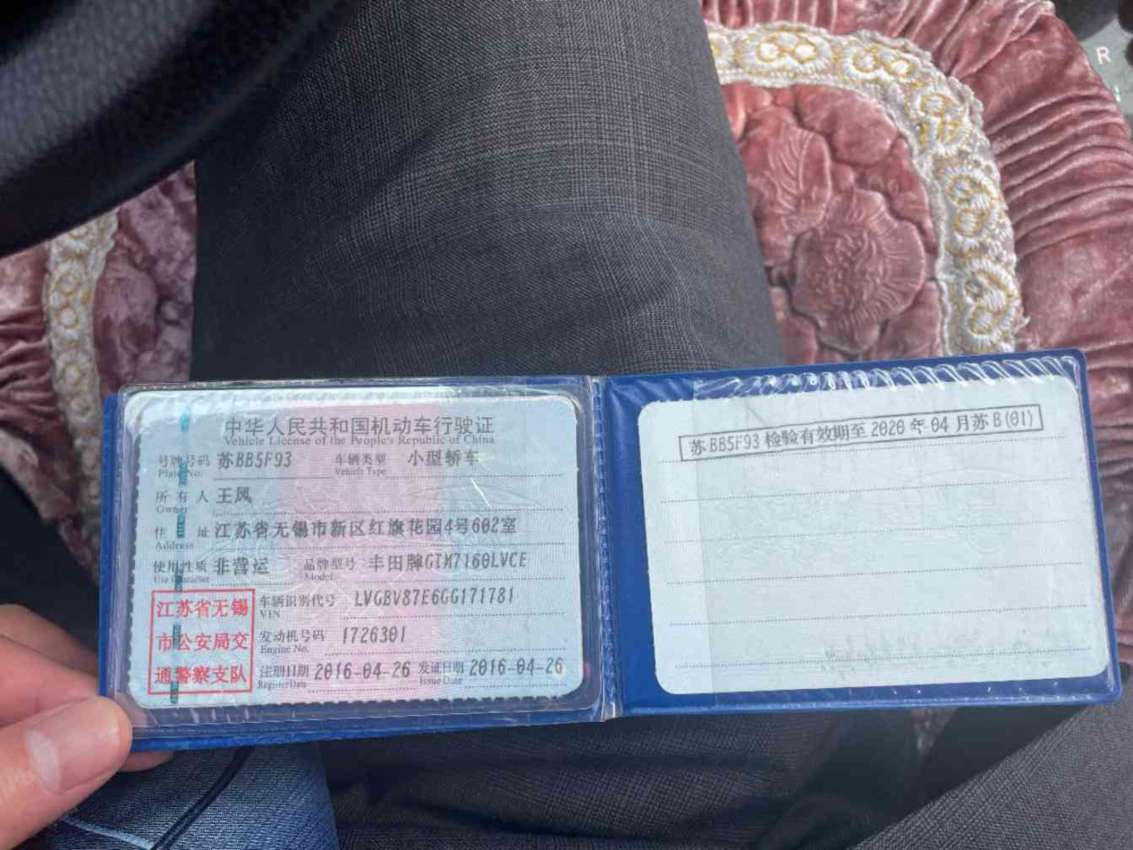 中华人民共和国机动车行驶证
Vehicle License of the People's Republic of China
号牌号码 苏BB5F93 车辆类型 小型轿车
Plate No. Vehicle Type
所有人 王风
Owner
住址 江苏省无锡市新区红旗花园4号602室
Address
使用性质 非营运 品牌型号 丰田牌GTM7160LVCE
Use Character Model
江苏省无锡
市公安局交
通警察支队
车辆识别代号 LVGBV87E6GG171781
VIN
发动机号码 1726301
Engine No.
注册日期 2016-04-26 发证日期 2016-04-26
Register Date Issue Date
苏BB5F93 检验有效期至 2020 年 04 月苏B(01)
R